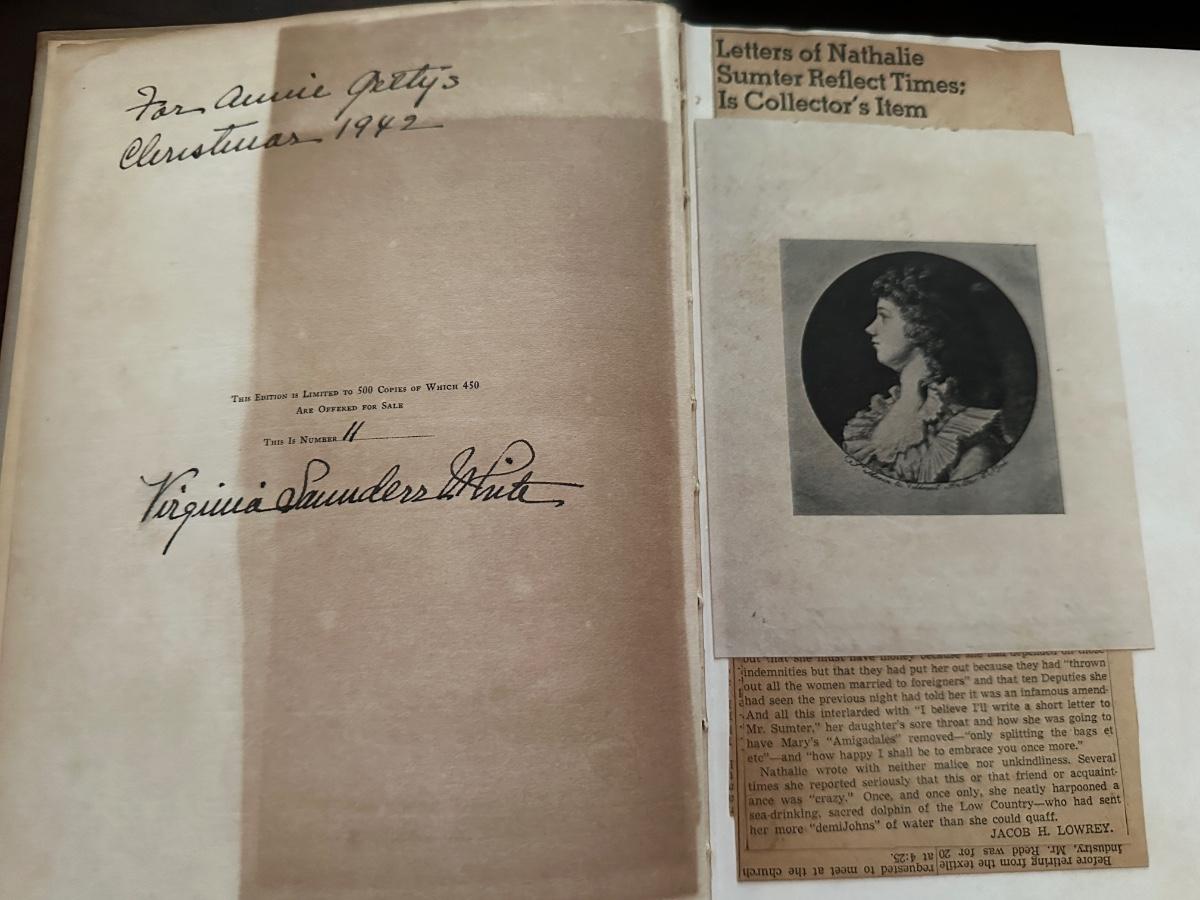 For Annie Gettys
Christmas 1942
This Edition is Limited to 500 Copies of Which 450
Are Offered for Sale
This Is Number 11
Virginia Saunders White
Letters of Nathalie
Sumter Reflect Times;
Is Collector's Item
out that she must have money because she had depended on those
indemnities but that they had put her out because they had "thrown
out all the women married to foreigners" and that ten Deputies she
had seen the previous night had told her it was an infamous amend-
And all this interlarded with "I believe I'll write a short letter to
Mr. Sumter," her daughter's sore throat and how she was going to
have Mary's "Amigadales" removed—"only splitting the bags et
etc"—and "how happy I shall be to embrace you once more."
Nathalie wrote with neither malice nor unkindliness. Several
times she reported seriously that this or that friend or acquaint-
ance was "crazy." Once, and once only, she neatly harpooned a
sea-drinking, sacred dolphin of the Low Country—who had sent
her more "demiJohns" of water than she could quaff.
JACOB H. LOWREY.
Before retiring from the textile
industry, Mr. Redd was for 20
requested to meet at the church
at 4:25.